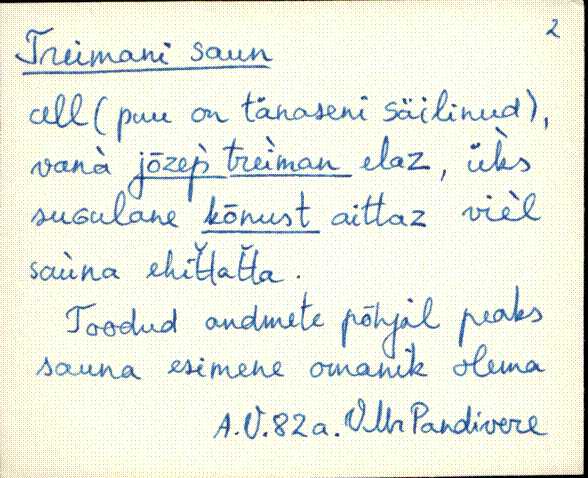 2
Treimani saun
all (puu on tänaseni säilinud),
vanà jōzep̀ trèiman elaz, ük̀s
suGulane kōnust aittaz vièl
saùna ehìt̆tat̆ta.
Toodud andmete põhjal peaks
sauna esimene omanik olema
A.V. 82 a. VMr Pandivere